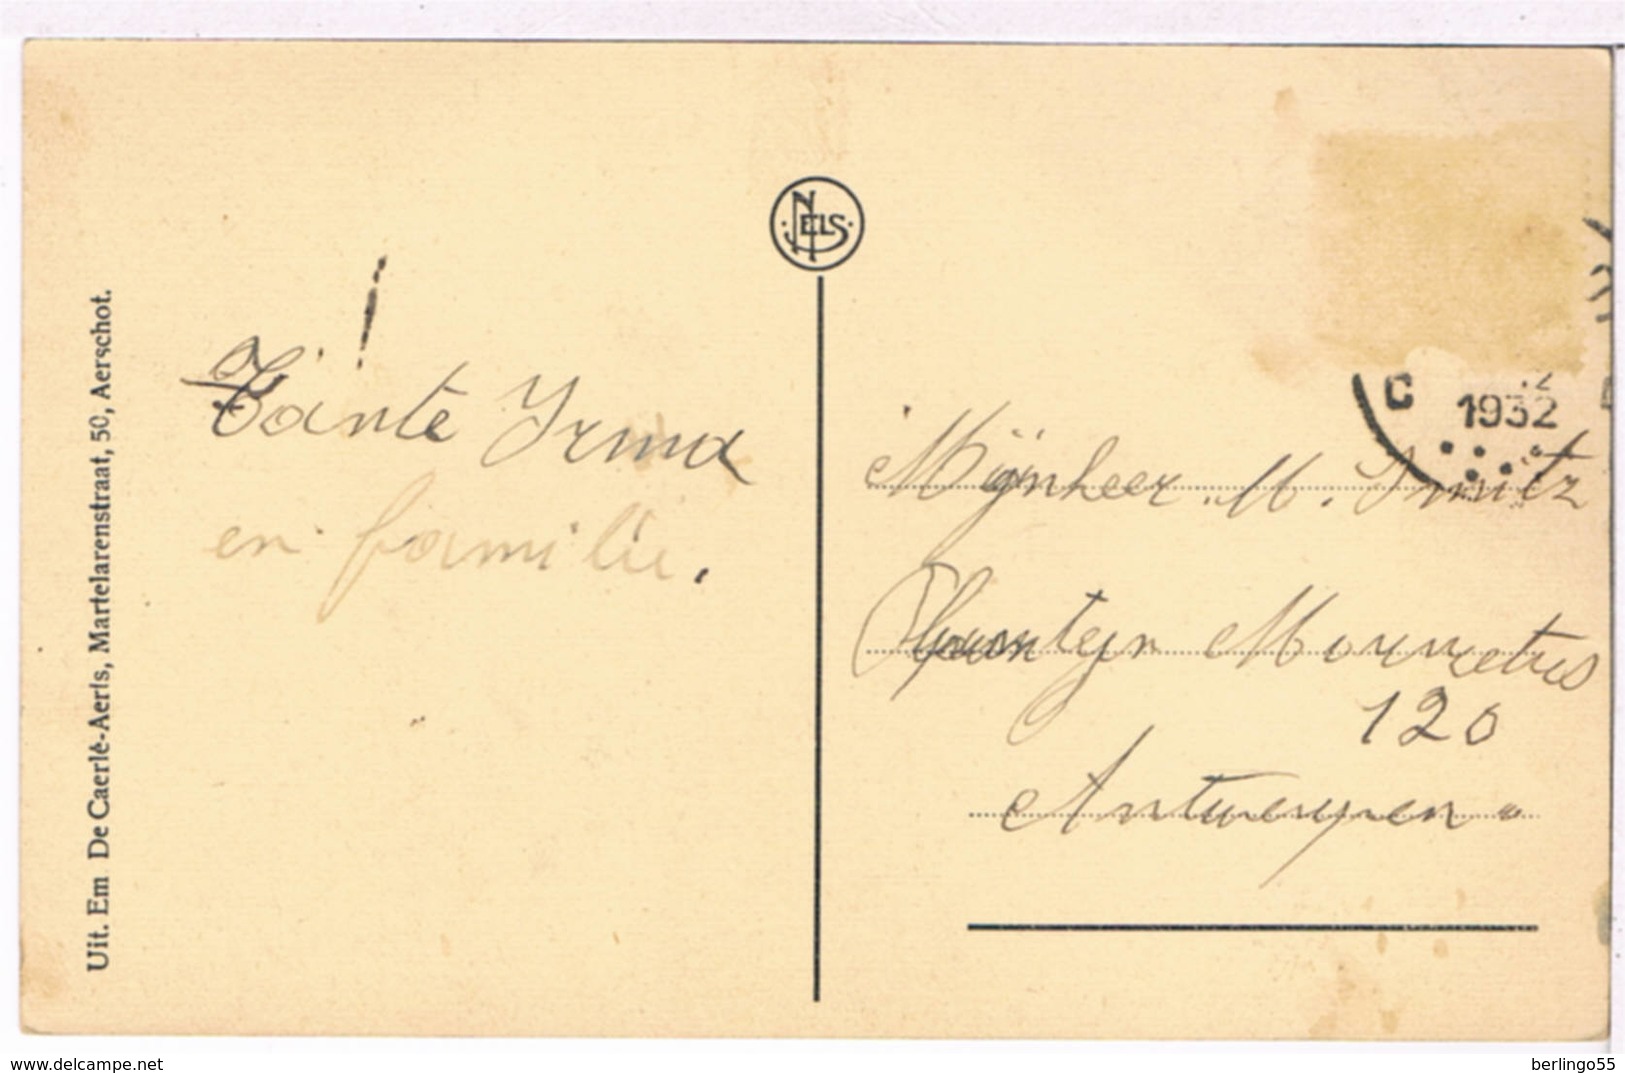 Uit. Em De Caerlé-Aerts, Martelarenstraat, 50, Aerschot.
Tante Irma
en familie.
NELS
C 1932
Mijnheer M. Smitz
120
Antwerpen
www.delcampe.net
berlingo55